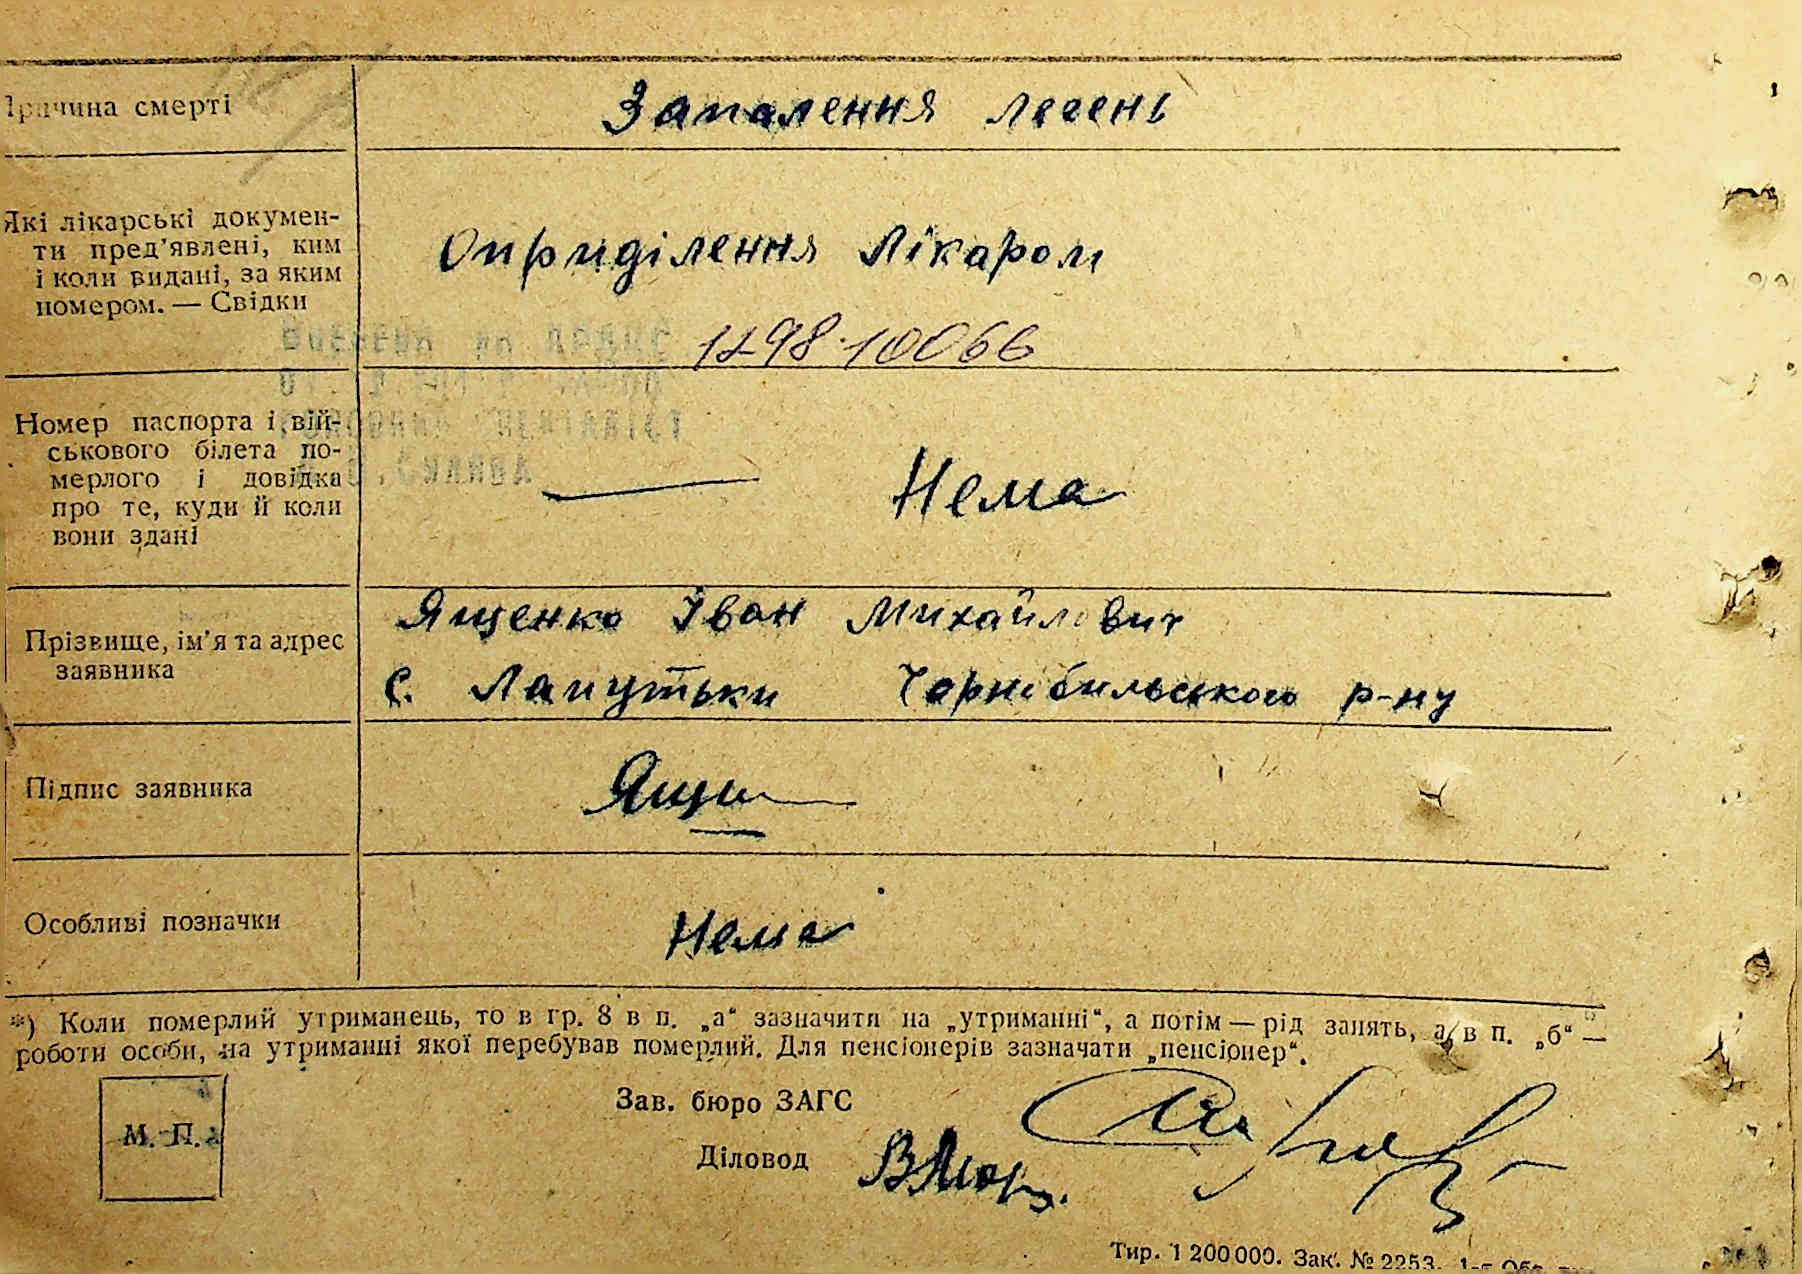 Причина смерті
Запалення легень
Які лікарські докумен-
ти пред'явлені, ким
і коли видані, за яким
номером. — Свідки
Оприділення лікаром
Номер паспорта і вій-
ськового білета по-
мерлого і довідка
про те, куди й коли
вони здані
— Нема
Прізвище, ім'я та адрес
заявника
Ященко Іван Михайлович
с. Лапутьки Чорнобильського р-ну
Підпис заявника
Ящен
Особливі позначки
Нема
*) Коли померлий утриманець, то в гр. 8 в п. „а“ зазначити на „утриманні“, а потім — рід занять, а в п. „б“ —
роботи особи, на утриманні якої перебував померлий. Для пенсіонерів зазначати „пенсіонер“.
М. П.
Зав. бюро ЗАГС
Діловод
Тир. 1 200 000. Зак. № 2253.